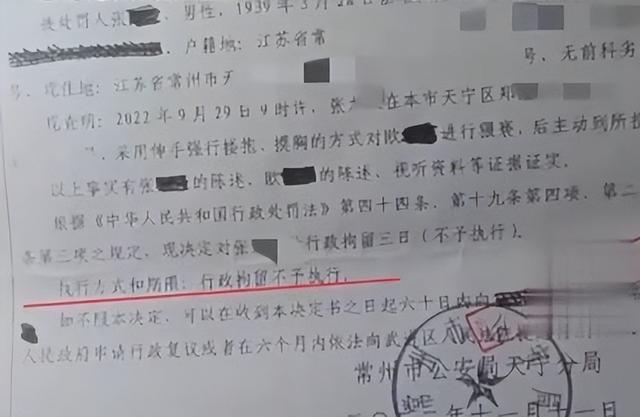 被处罚人张 、男性，1939年3月28日
，户籍地：江苏省常
号，现住地：江苏省常州市天 号，无前科劣
现查明：2022年9月29日9时许，张 在本市天宁区郑
，采用伸手强行搂抱、摸胸的方式对欧 进行猥亵，后主动到所投
以上事实有张 的陈述，欧 的陈述、视听资料等证据证实。
根据《中华人民共和国行政处罚法》第四十四条、第十九条第四项、第二
条第三项之规定，现决定对张 行政拘留三日（不予执行）。
执行方式和期限：行政拘留不予执行。
如不服本决定，可以在收到本决定书之日起六十日内向
人民政府申请行政复议或者在六个月内依法向武进区人民法
常州市公安局天宁分局
二〇二二年十一月十一日